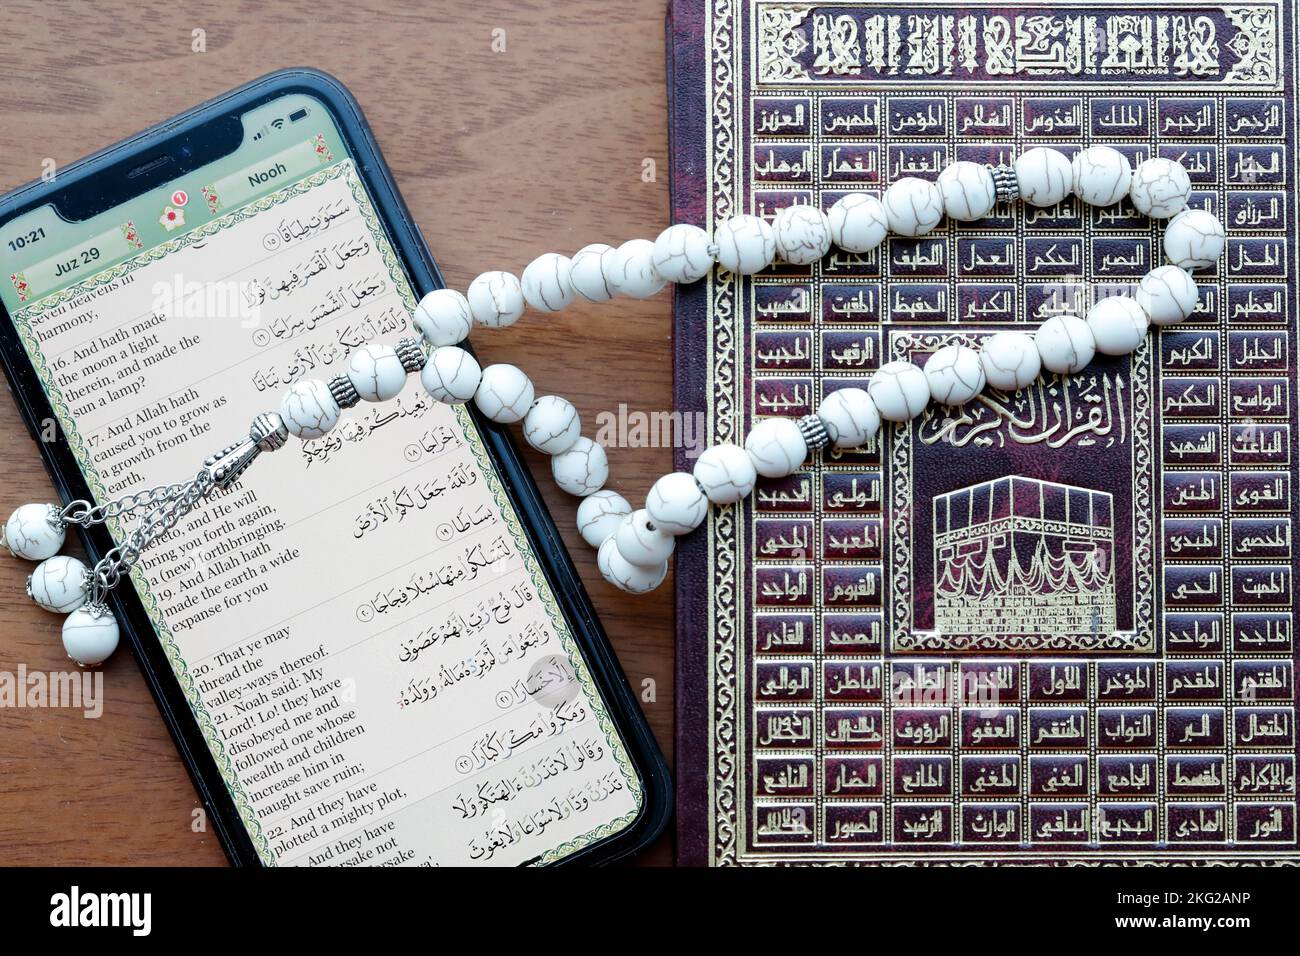 10:21
Nooh
Juz 29
1
seven heavens in
harmony,
16. And hath made
the moon a light
therein, and made the
sun a lamp?
17. And Allah hath
caused you to grow as
a growth from the
earth,
return
and He will
bring you forth again,
a (new) forthbringing.
19. And Allah hath
made the earth a wide
expanse for you
20. That ye may
thread the
valley-ways thereof.
21. Noah said: My
Lord! Lo! they have
disobeyed me and
followed one whose
wealth and children
increase him in
naught save ruin;
22. And they have
plotted a mighty plot,
And they have
forsake not
سَمَٰوَٰتٍ طِبَاقًا ١٥
وَجَعَلَ ٱلْقَمَرَ فِيهِنَّ نُورًا
وَجَعَلَ ٱلشَّمْسَ سِرَاجًا ١٦
وَٱللَّهُ أَنۢبَتَكُم مِّنَ ٱلْأَرْضِ نَبَاتًا
يُعِيدُكُمْ فِيهَا وَيُخْرِجُكُمْ
إِخْرَاجًا ١٨
وَٱللَّهُ جَعَلَ لَكُمُ ٱلْأَرْضَ
بِسَاطًا ١٩
لِّتَسْلُكُوا۟ مِنْهَا سُبُلًا فِجَاجًا ٢٠
قَالَ نُوحٌ رَّبِّ إِنَّهُمْ عَصَوْنِى
وَٱتَّبَعُوا۟ مَن لَّمْ يَزِدْهُ مَالُهُۥ وَوَلَدُهُۥٓ
إِلَّا خَسَارًا ٢١
وَمَكَرُوا۟ مَكْرًا كُبَّارًا ٢٢
وَقَالُوا۟ لَا تَذَرُنَّ ءَالِهَتَكُمْ وَلَا
تَذَرُنَّ وَدًّا وَلَا سُوَاعًا وَلَا يَغُوثَ
الرحمن الرحيم الملك القدوس السلام المؤمن المهيمن العزيز
الجبار المتكبر الغفار القهار الوهاب
الرزاق
المذل البصير الحكم العدل اللطيف الخبير
العظيم الكبير الحفيظ المقيت الحسيب
الجليل الكريم الرقيب المجيب
الواسع الحكيم المجيد
الباعث الشهيد
القرآن الكريم
القوي المتين الولي الحميد
المحصي المبدئ المعيد المحيي
المميت الحي القيوم الواجد
الماجد الواحد الصمد القادر
المقتدر المقدم المؤخر الأول الآخر الظاهر الباطن الوالي
المتعال البر التواب المنتقم العفو الرؤوف
والإكرام المقسط الجامع الغني المغني المانع الضار النافع
النور الهادي البديع الباقي الوارث الرشيد الصبور
alamy
Image ID: 2KG2ANP
www.alamy.com